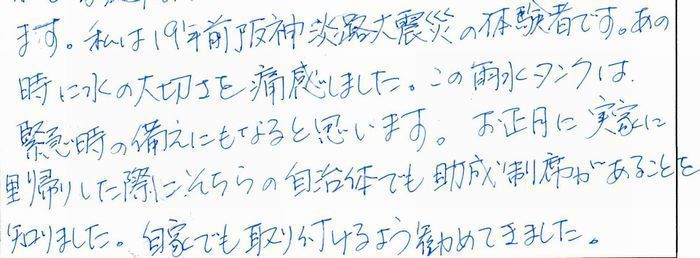 ます。私は19年前阪神淡路大震災の体験者です。あの
時に水の大切さを痛感しました。この雨水タンクは
緊急時の備えにもなると思います。お正月に実家に
里帰りした際にそちらの自治体でも助成制席があることを
知りました。自家でも取り付けるよう勧めてきました。